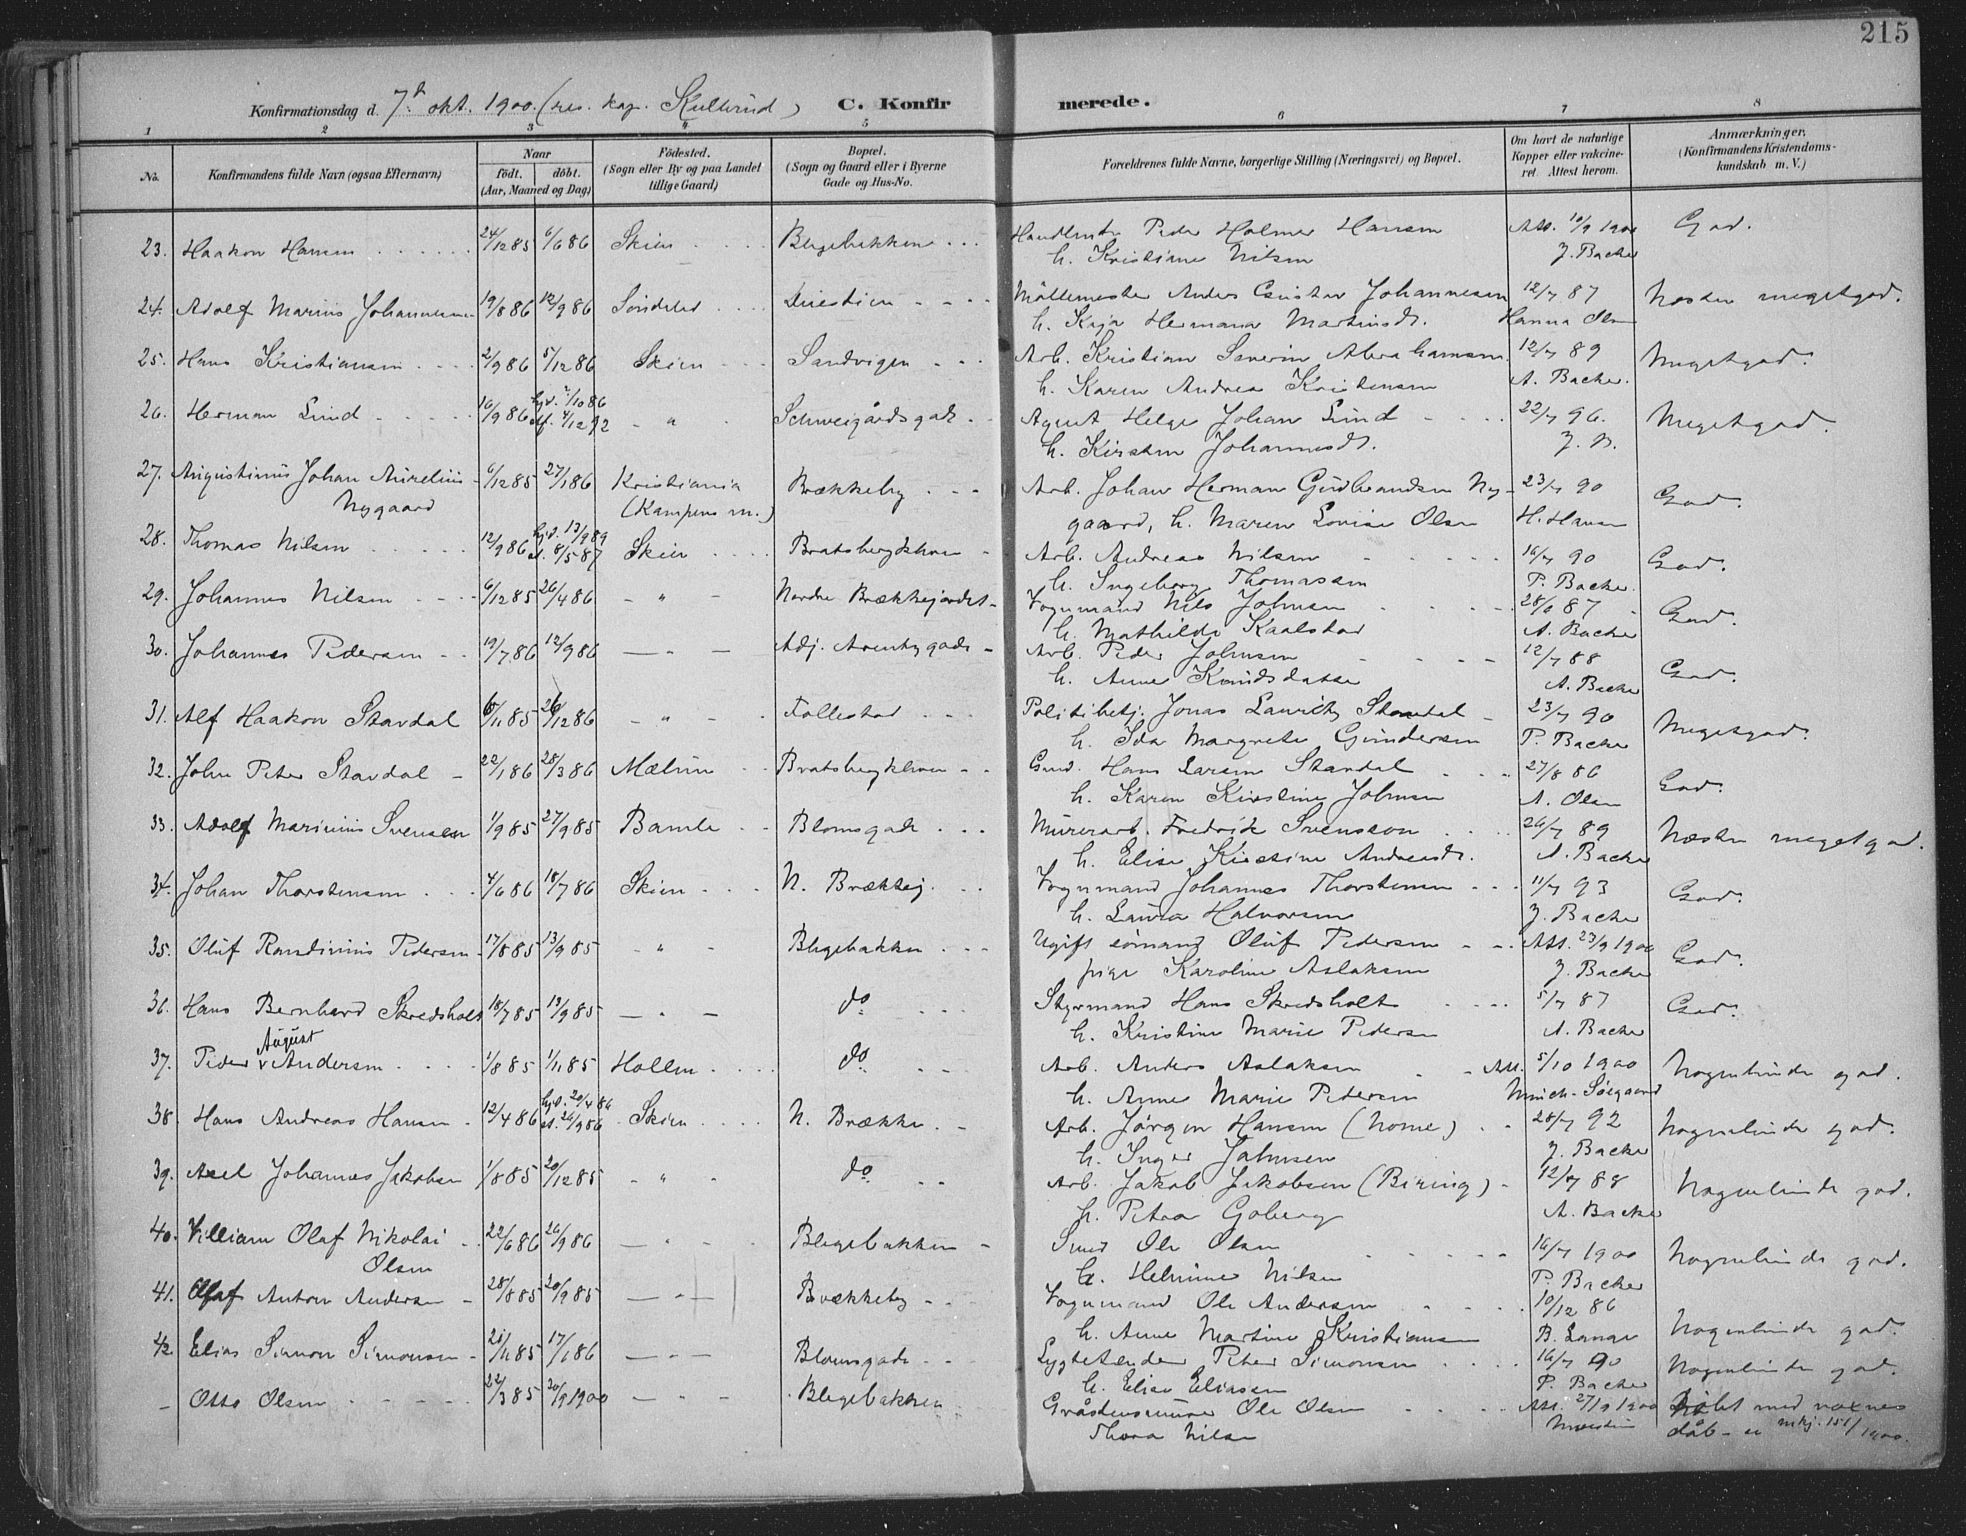 215
Konfirmationsdag d. 7de okt. 1900. (res. kap. Kullerud) C. Konfirmerede.
1 2 3 4 5 6 7 8
No. Konfirmandens fulde Navn (ogsaa Efternavn) Naar født. døbt. (Aar, Maaned og Dag) Födested. (Sogn eller By og paa Landet tillige Gaard) Bopæl. (Sogn og Gaard eller i Byerne Gade og Hus-No. Forældrenes fulde Navne, borgerlige Stilling (Næringsvei) og Bopæl. Om havt de naturlige Kopper eller vakcineret. Attest herom. Anmærkninger. (Konfirmandens Kristendomskundskab m. V.)
23. Haakon Hansen 24/12 85 6/6 86 Skien Blegebakken Handlende Peder Holmer Hansen Att. 10/9 1900 God.
h. Kristiane Nilsen J. Backer
24. Adolf Marius Johannesen 19/8 86 12/9 86 Söndeled Duestien Möllemester Anders Gustav Johannesen 12/7 87 Næsten megetgod.
h. Kaja Hermana Martinsdt. Hanna Olsen
25. Hans Kristiansen 2/9 86 5/12 86 Skien Sandvigen Arb. Kristian Severin Abrahamsen 12/7 89 Megetgod.
h. Karen Andrea Kristensen A. Backer.
26. Herman Lund 16/9 86 hjd. 7/10 86 4/12 92 - " - Schweigårdsgade Agent Helge Johan Lund 22/7 96. Megetgod.
h. Kirsten Johannesdt. J. B.
27. Augustinus Johan Aurelius 6/12 85 27/1 86 Kristiania Brækkeby Arb. Johan Herman Gudbrandsen Ny- 23/7 90 God.
Nygaard (Kampens m.) gaard, h. Maren Lovise Olsen H. Hansen
28. Thomas Nilsen 12/9 86 hjd. 13/9 89 8/5 87 Skien Bratsbergkleven Arb. Andreas Nilsen 16/7 90 God.
h. Ingeborg Thomassen P. Backer.
29. Johannes Nilsen 6/12 85 26/4 86 - " - Nordre Brækkejordet Vognmand Nils Johnsen 28/6 87 God.
h. Mathilde Kaalstad A. Backer
30. Johannes Pedersen 19/7 86 12/9 86 - " - Adj. Arentzgade Arb. Peder Johnsen 12/7 88 God.
h. Anne Knudsdatter A. Backer
31. Alf Haakon Stavdal 6/11 85 26/12 86 - " - Follestad Politibetj. Jonas Lauritz Stavdal 23/7 90 Megetgod.
h. Ida Margrete Gundersen P. Backer
32. John Peter Stavdal 22/1 86 28/3 86 Mælum Bratsbergkleven Hans Larsen Stavdal 27/8 86 God.
h. Karen Kirstine Johnsen A. Olsen
33. Adolf Marinius Svensen 1/9 85 27/9 85 Bamle Blomsgade Murerarb. Fredrik Svensson 26/7 89 Næsten megetgod.
h. Elise Kirstine Andreasdt. A. Backer
34. Johan Thorstensen 4/6 86 18/7 86 Skien N. Brækkej. Vognmand Johannes Thorstensen 11/7 93 God.
h. Laura Halvorsen J. Backer
35. Oluf Randinius Pedersen 17/8 85 13/9 85 - " - Blegebakken Ugift sömand Oluf Pedersen Att. 23/9 1900 God.
pige Karoline Aslaksen J. Backer
36. Hans Bernhard Skredsholt 18/7 85 13/9 85 - " - do Styrmand Hans Skredsholt 5/7 87 God.
h. Kristine Marie Pedersen A. Backer
37. Peder August Andersen 1/8 85 1/11 85 Hollen do. Arb. Anders Aslaksen Att. 5/10 1900 Nogenlunde god.
h. Anne Marie Pedersen Munch-Søegaard
38. Hans Andreas Hansen 12/4 86 hjd. 20/4 86 st. 26/9 86 Skien N. Brække Arb. Jørgen Hansen (Nome) 28/7 92 Nogenlunde god.
h. Inger Johnsen J. Backer
39. Axel Johannes Jakobsen 1/8 85 20/12 85 - " - do. Arb. Jakob Jakobsen (Biring) 12/7 88 Nogenlunde god.
h. Petra Goberg A. Backer
40. Villiam Olaf Nikolai 22/6 86 26/9 86 - " - Blegebakken Smed Ole Olsen 16/7 1900 Nogenlunde god.
Olsen h. Helmine Nilsen P. Backer
41. Olaf Anton Andersen 28/8 85 20/9 85 - " - Brækkeby Vognmand Ole Andersen 10/12 86 Nogenlunde god.
h. Anne Martine Kristiansen B. Lange
42. Elias Simon Simonsen 21/11 85 17/1 86 - " - Blomsgade Lygtetænder Peter Simonsen 16/7 90 Nogenlunde god.
h. Elise Eliasen P. Backer
- Otto Olsen 22/3 85 20/9 1900 - " - Blegebakken Gråstensmurer Ole Olsen Att. 27/9 1900 Döbt med voxnes
Thora Nilsen dåb - mkj. 151/1900.